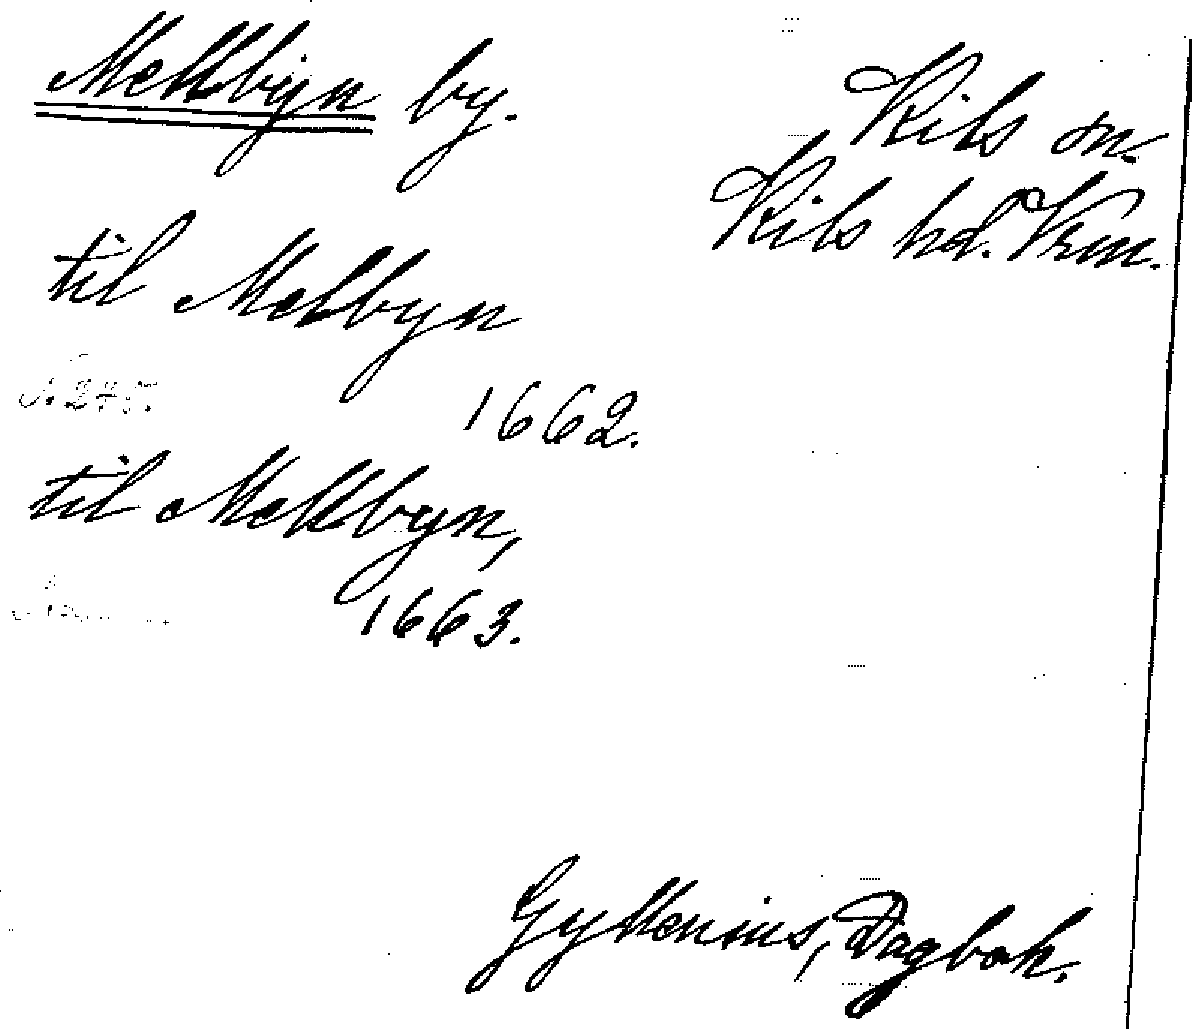 Mellbyn by. Kils sn.
Kils hd. Vrm.
til Melbyn
s. 245.
1662.
til Mellbyn,
1663.
Gyllenius, Dagbok.